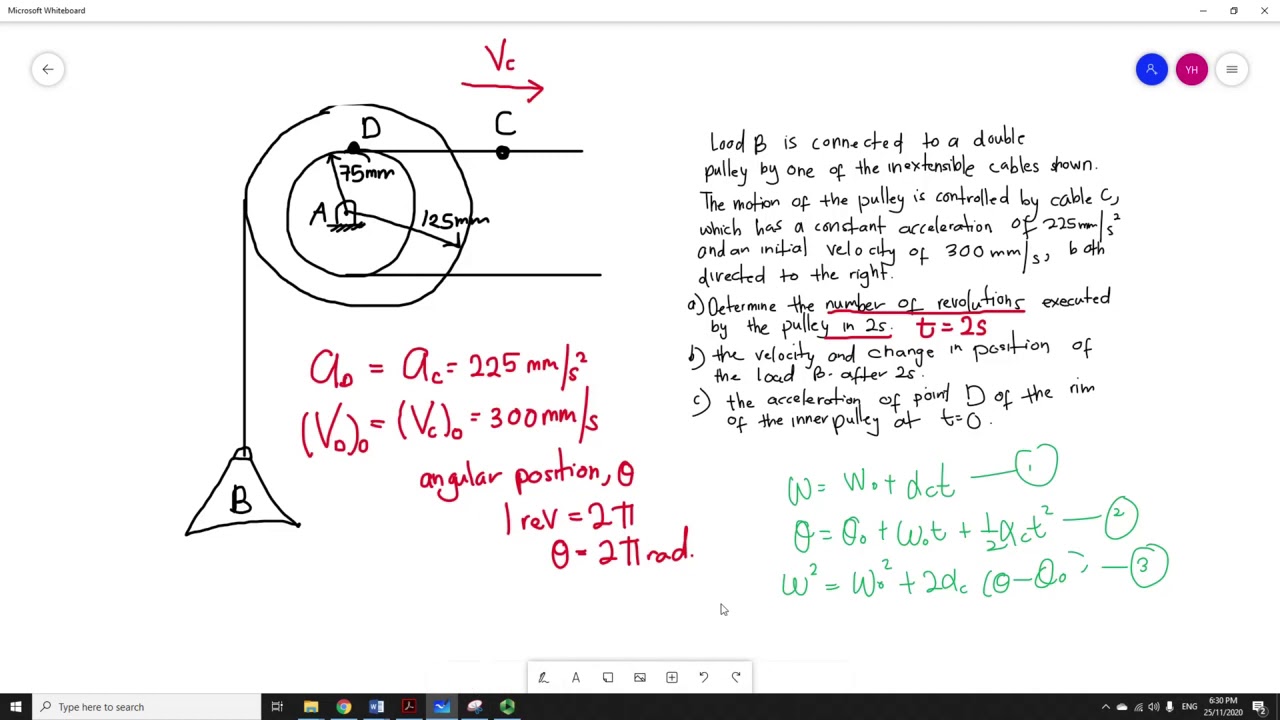 Microsoft Whiteboard
YH
Vc
D
C
75mm
A
125mm
B
Load B is connected to a double
pulley by one of the inextensible cables shown.
The motion of the pulley is controlled by cable C,
which has a constant acceleration of 225mm/s²
and an initial velocity of 300 mm/s, both
directed to the right.
a) Determine the number of revolutions executed
by the pulley in 2s. t = 2s
b) the velocity and change in position of
the load B. after 2s.
c) the acceleration of point D of the rim
of the inner pulley at t=0.
a_D = a_C = 225 mm/s²
(V_D)₀ = (V_C)₀ = 300mm/s
angular position, θ
1 rev = 2π
θ = 2π rad.
ω = ω₀ + α_c t — 1.
θ = θ₀ + ω₀t + ½α_c t² — 2
ω² = ω₀² + 2α_c (θ-θ₀) — 3
A
Type here to search
ENG
6:30 PM
25/11/2020
2